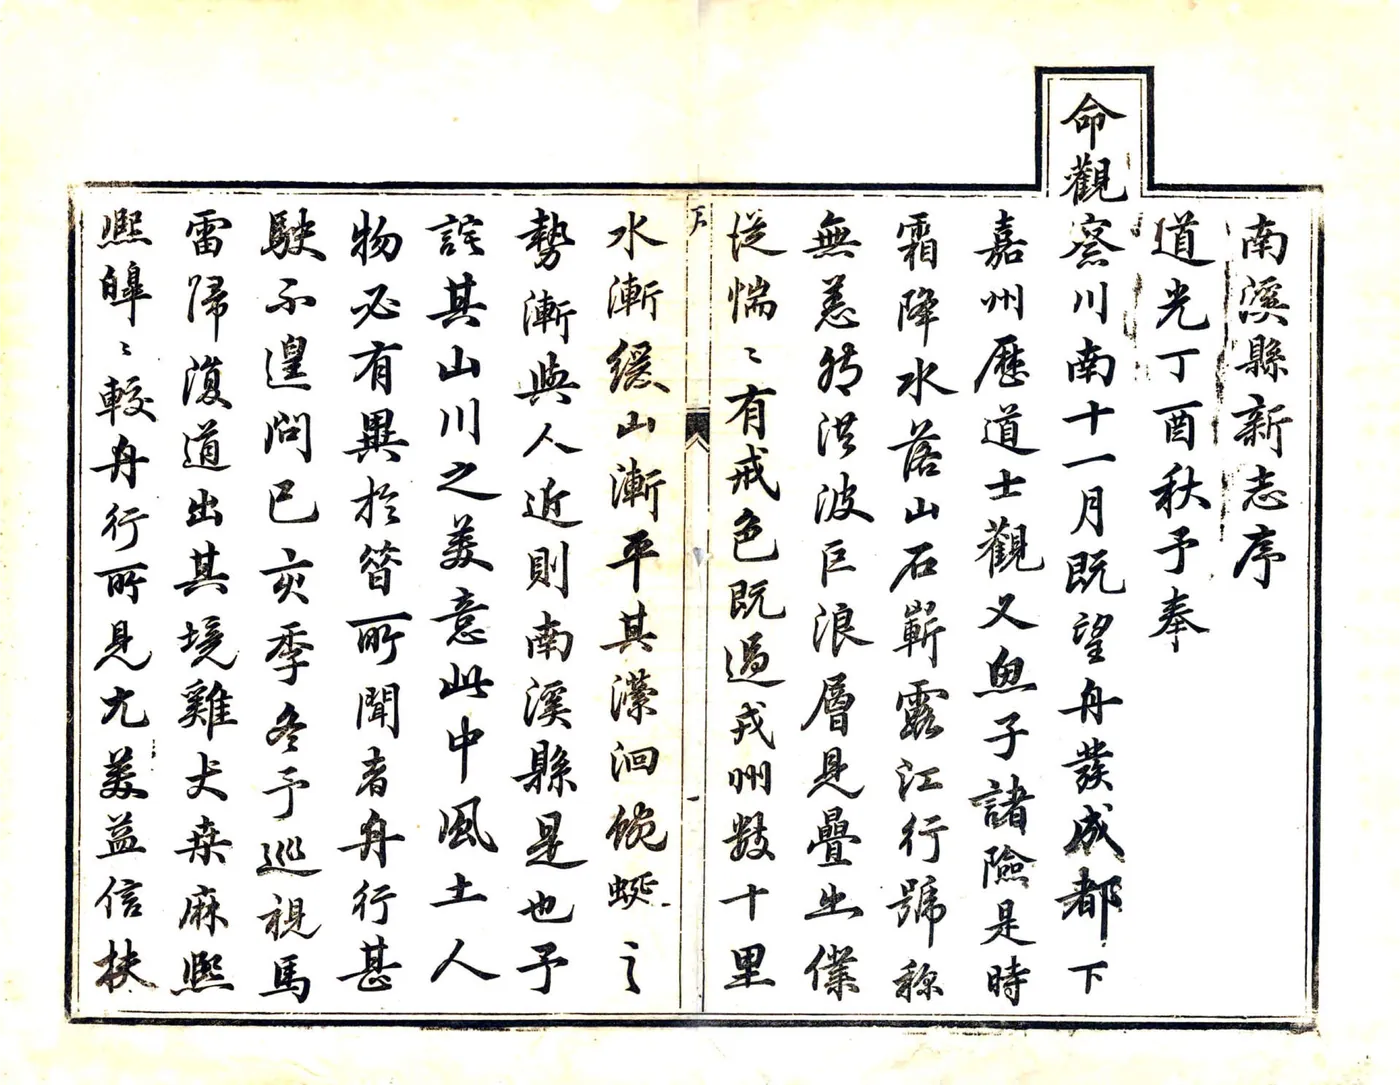 南溪縣新志序
道光丁酉秋予奉
命觀察川南十一月既望舟發成都下
嘉州歷道士觀义魚子諸險是時
霜降水落山石嶄露江行號稱
無恙然洪波巨浪層見疊出僕
從惴〻有戒色既過戎州數十里
序
一
水漸緩山漸平其瀠洄蜿蜒之
勢漸與人近則南溪縣是也予
詫其山川之美意此中風土人
物必有異於昔所聞者舟行甚
駛不遑問己亥季冬予巡視馬
雷歸復道出其境雞犬桑麻熙
熙皞〻較舟行所見尤美益信扶